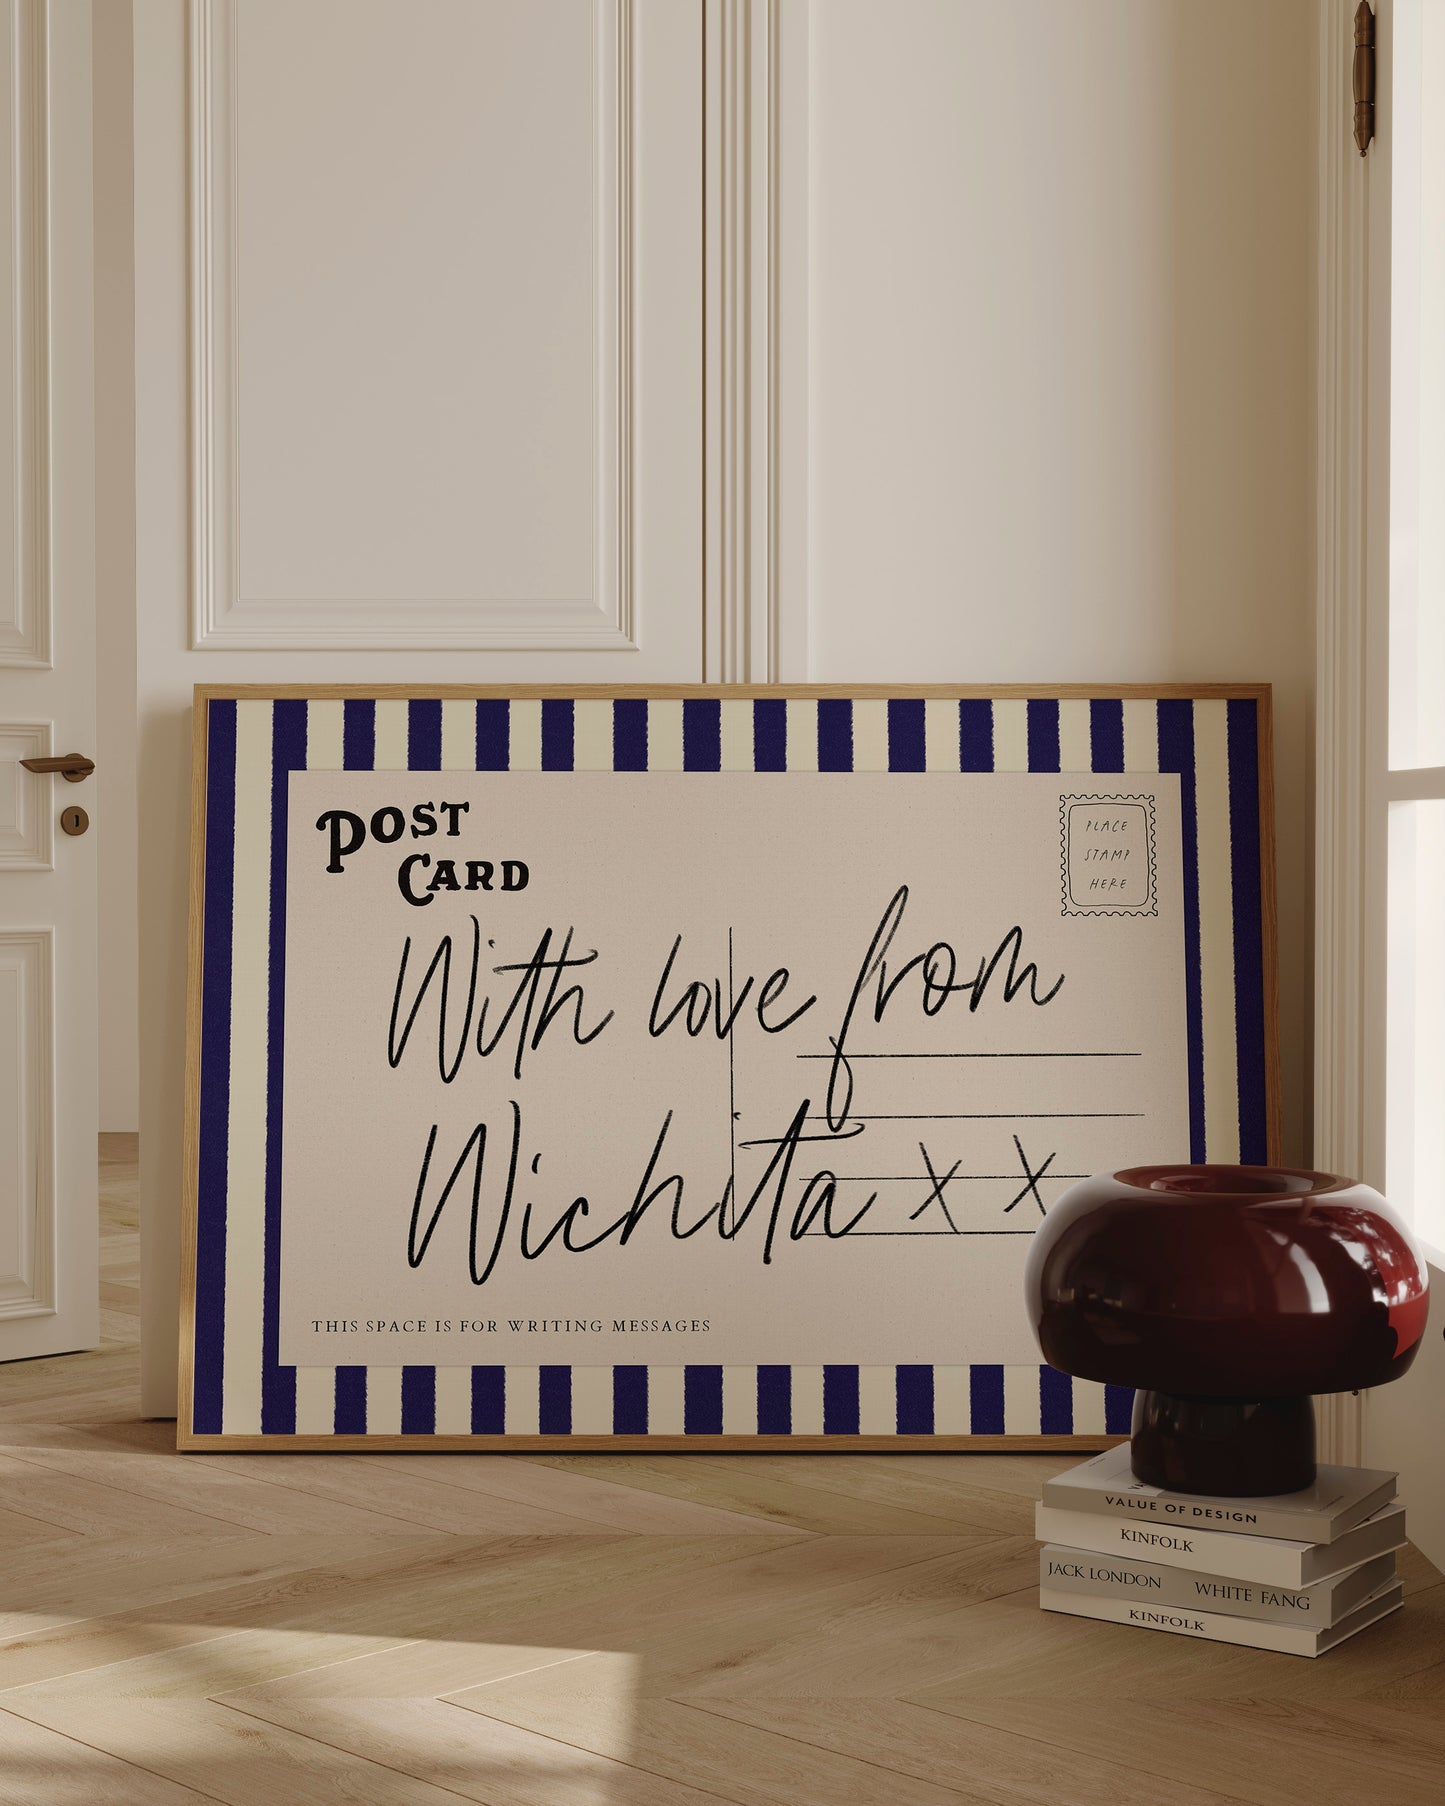 POST
CARD
PLACE
STAMP
HERE
With love from
Wichita x x
THIS SPACE IS FOR WRITING MESSAGES
VALUE OF DESIGN
KINFOLK
JACK LONDON WHITE FANG
KINFOLK